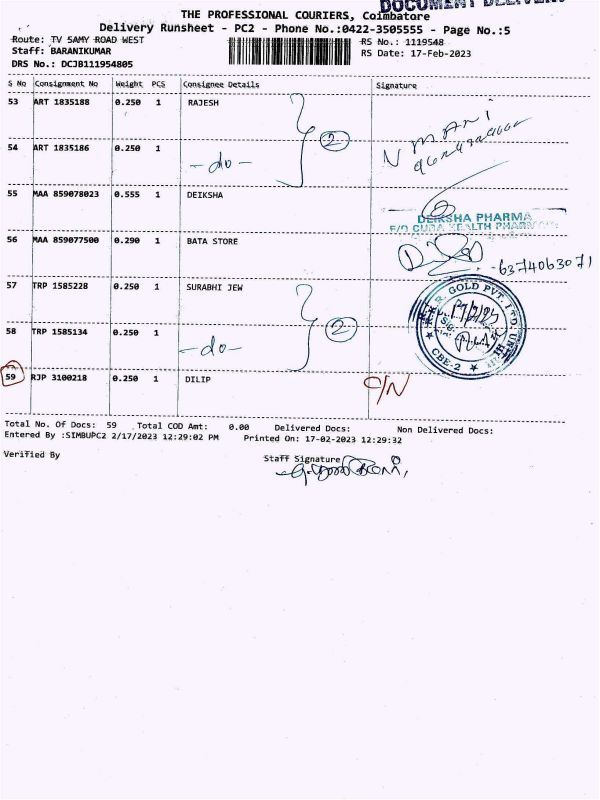 DOCUMENT DELIVERY
THE PROFESSIONAL COURIERS, Coimbatore
Delivery Runsheet - PC2 - Phone No.:0422-3505555 - Page No.:5
Route: TV SAMY ROAD WEST RS No.: 1119548
Staff: BARANIKUMAR RS Date: 17-Feb-2023
DRS No.: DCJB111954805
S No Consignment No Weight PCS Consignee Details Signature
53 ART 1835188 0.250 1 RAJESH
2
N MANI
54 ART 1835186 0.250 1
-do-
55 MAA 859078023 0.555 1 DEIKSHA
DEIKSHA PHARMA
56 MAA 859077500 0.290 1 BATA STORE
-6374063071
57 TRP 1585228 0.250 1 SURABHI JEW
GOLD PVT. LTD.
17/2/23
2
58 TRP 1585134 0.250 1
-do-
CBE-2
59 RJP 3100218 0.250 1 DILIP
C/N
Total No. Of Docs: 59 Total COD Amt: 0.00 Delivered Docs: Non Delivered Docs:
Entered By :SIMBUPC2 2/17/2023 12:29:02 PM Printed On: 17-02-2023 12:29:32
Verified By Staff Signature